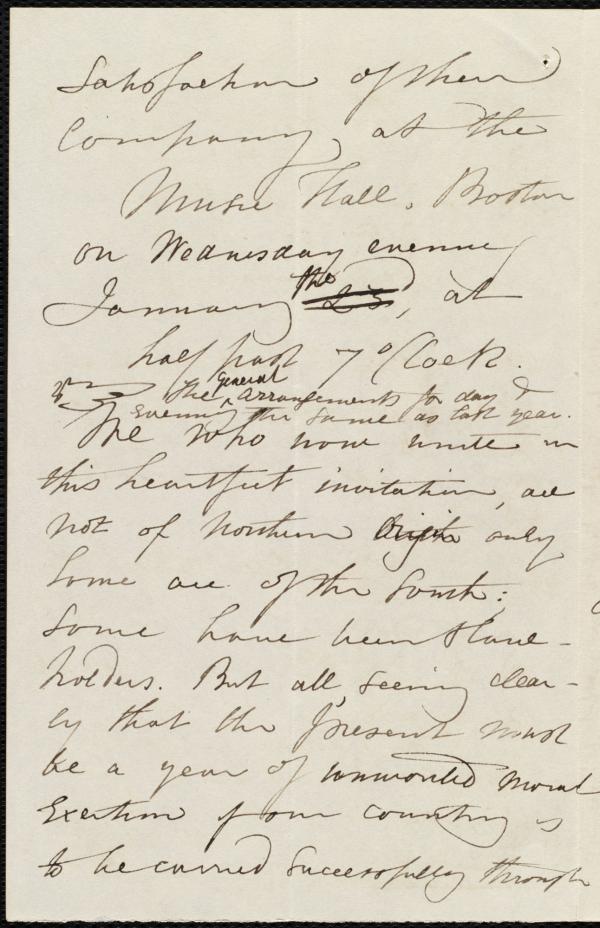 Satisfaction of their
Company, at the
Music Hall, Boston
on Wednesday evening
January the 23d, at
half past 7 o'Clock.
The general arrangements for day &
evening the same as last year.
We who now unite in
this heartfelt invitation, are
not of northern origin only
Some are of the South;
Some have been Slave-
holders. But all, seeing clear-
ly that the present must
be a year of unwonted moral
Exertion if our country is
to be carried successfully through